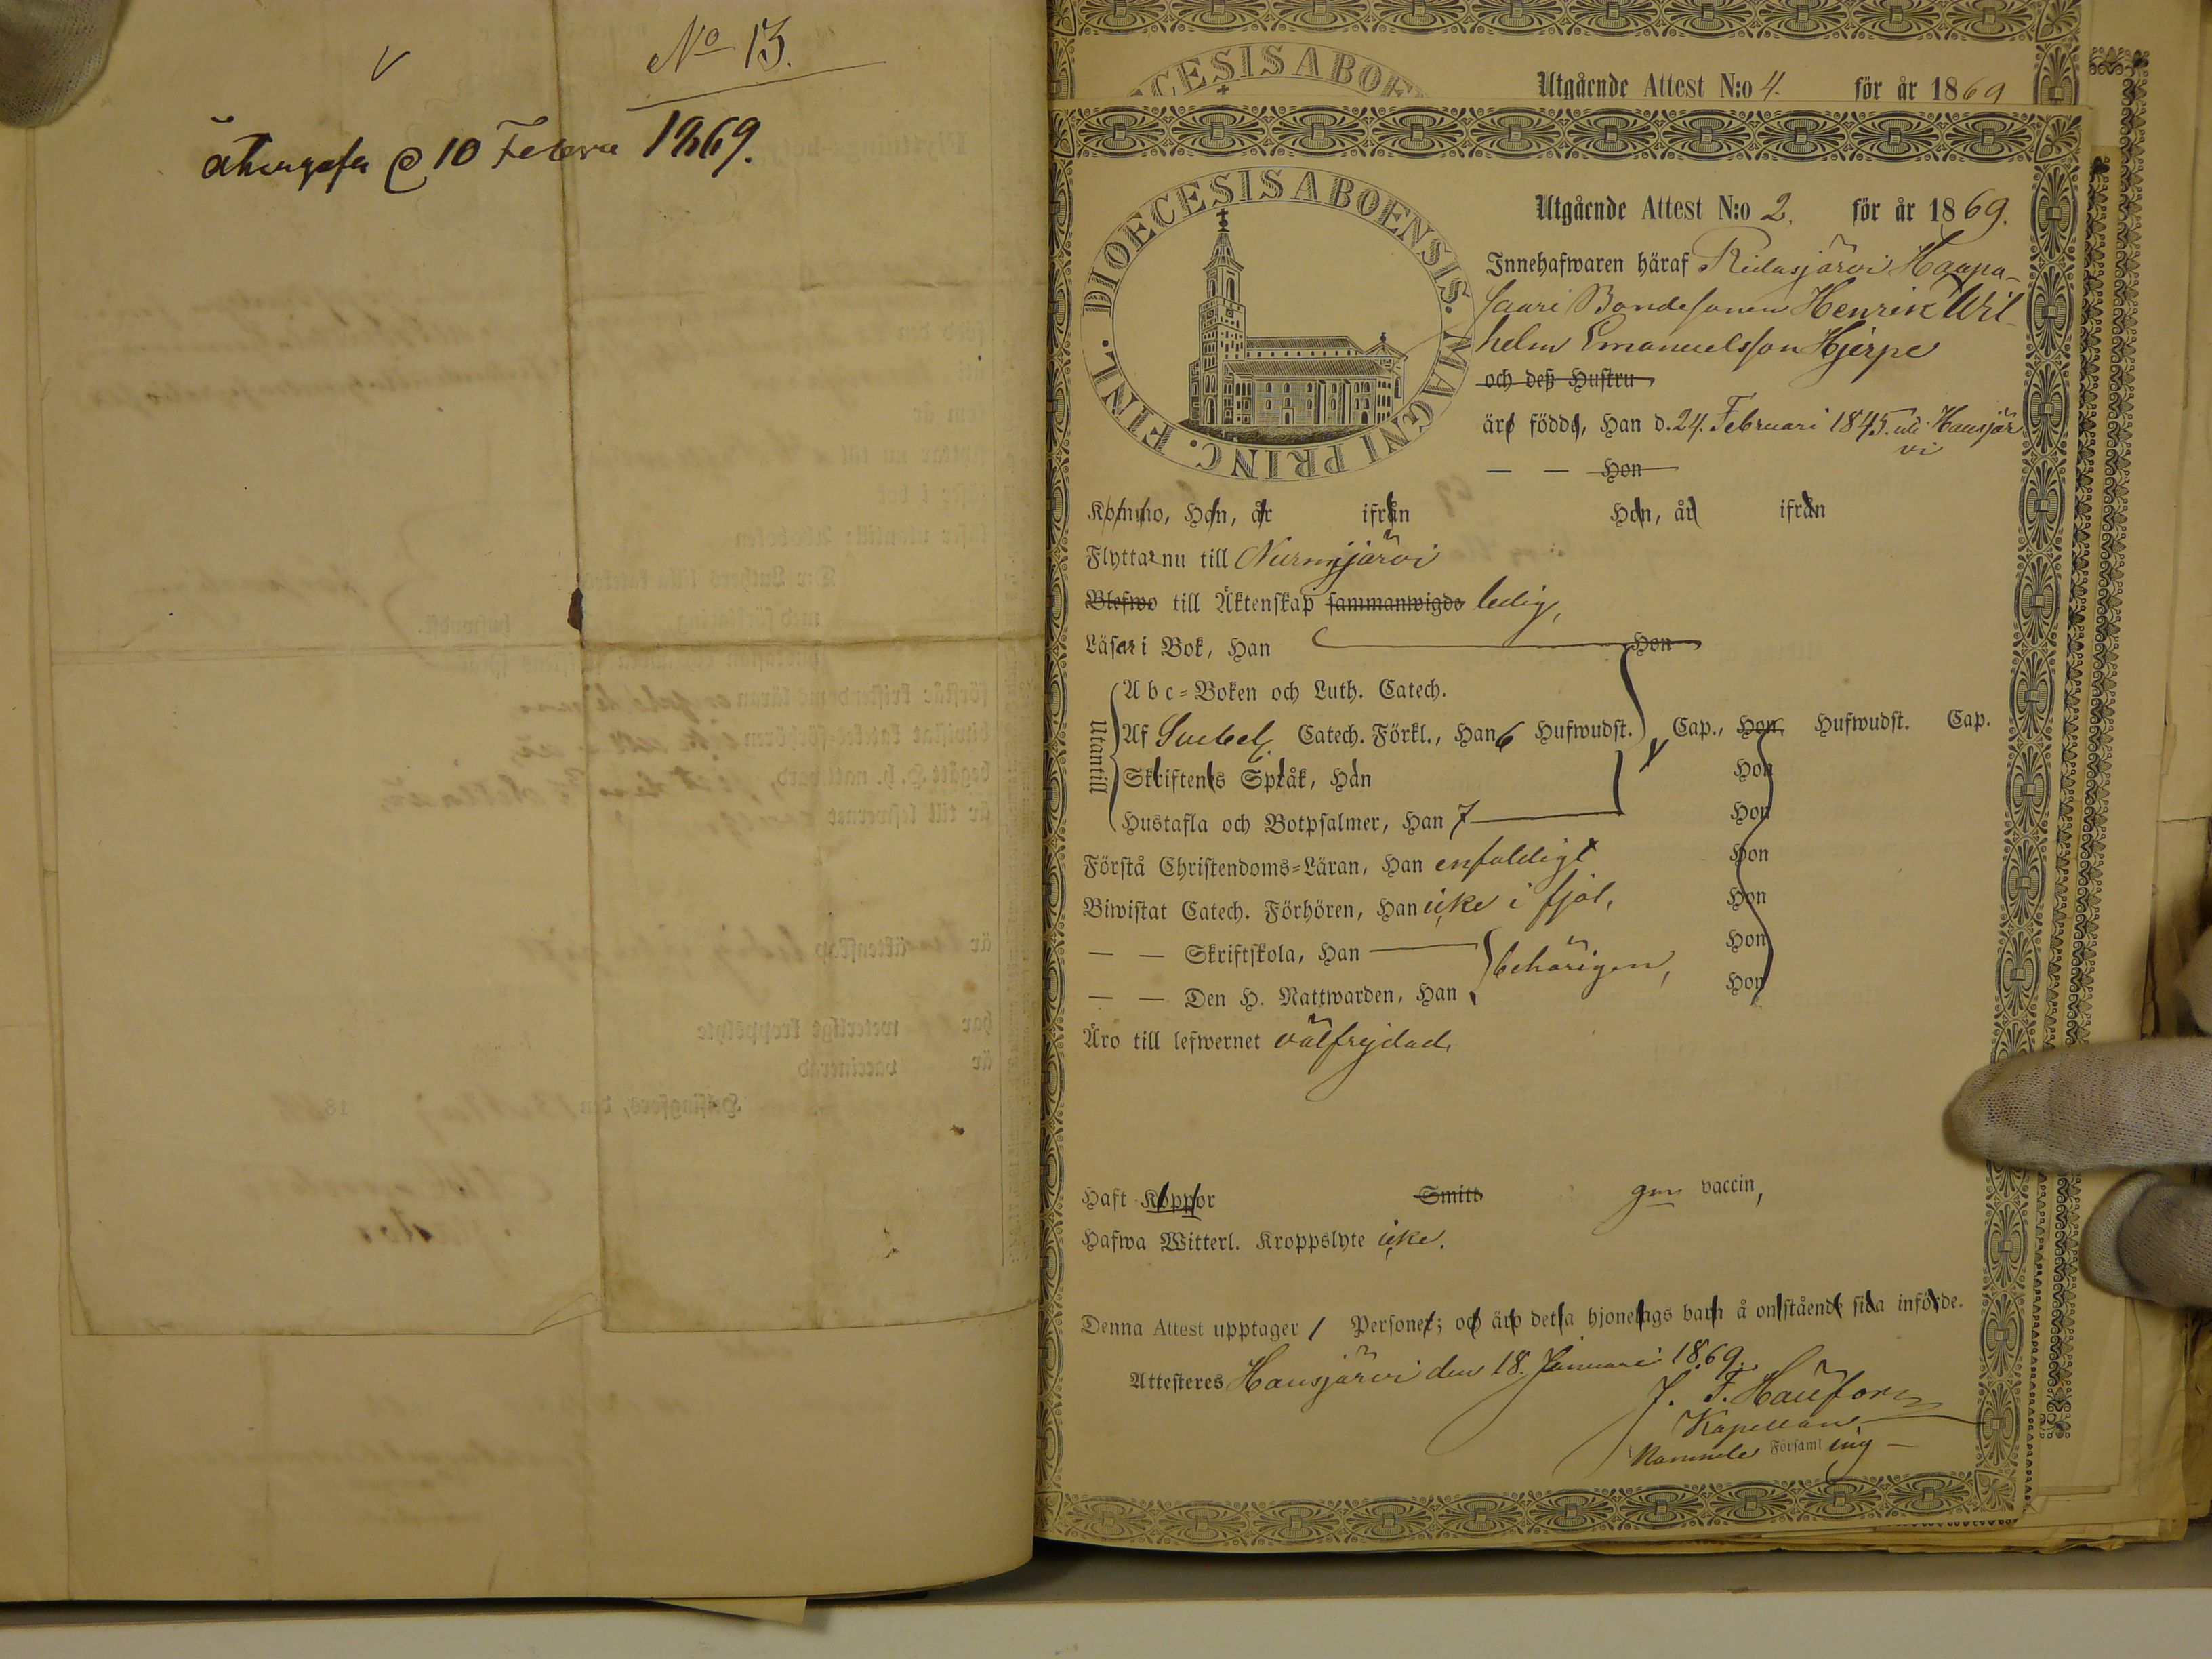 No 13.
@ 10 Febru 1869.
Utgående Attest N:o 4. för år 1869
DIOECESIS ABOENSIS. MAGNI PRINC. FINL.
Utgående Attest N:o 2. för år 1869.
Innehafwaren häraf Ridasjärvi Haapa-
saari Bondesonen Henrik Wil-
helm Emanuelsson Hjerpe
och deß Hustru
äro födde, Han d. 24. Februari 1845. uti Hausjär
vi
— — Hon
Kommo, Han, år ifrån Hon, år ifrån
Flyttar nu till Nurmijärvi
Blefwo till Äktenskap sammanwigde ledig,
Läser i Bok, Han Hon
Utantill
A b c=Boken och Luth. Catech.
Af Svebel. Catech. Förkl., Han 6 Hufwudst. Cap., Hon Hufwudst. Cap.
Skriftenes Språk, Han Hon
Hustafla och Botpsalmer, Han 7 Hon
Förstå Christendoms=Läran, Han enfaldigt Hon
Biwistat Catech. Förhören, Han icke i fjol, Hon
— — Skriftskola, Han behörigen, Hon
— — Den H. Nattwarden, Han Hon
Äro till lefwernet välfrejdad,
Haft Koppor Smitt gm vaccin,
Hafwa Witterl. Kroppslyte icke.
Denna Attest upptager 1 Personer; och äro detta hjonelags barn å omstående sida införde.
Attesteres Hausjärvi den 18. Januari 1869.
Kapellan
Församl ing